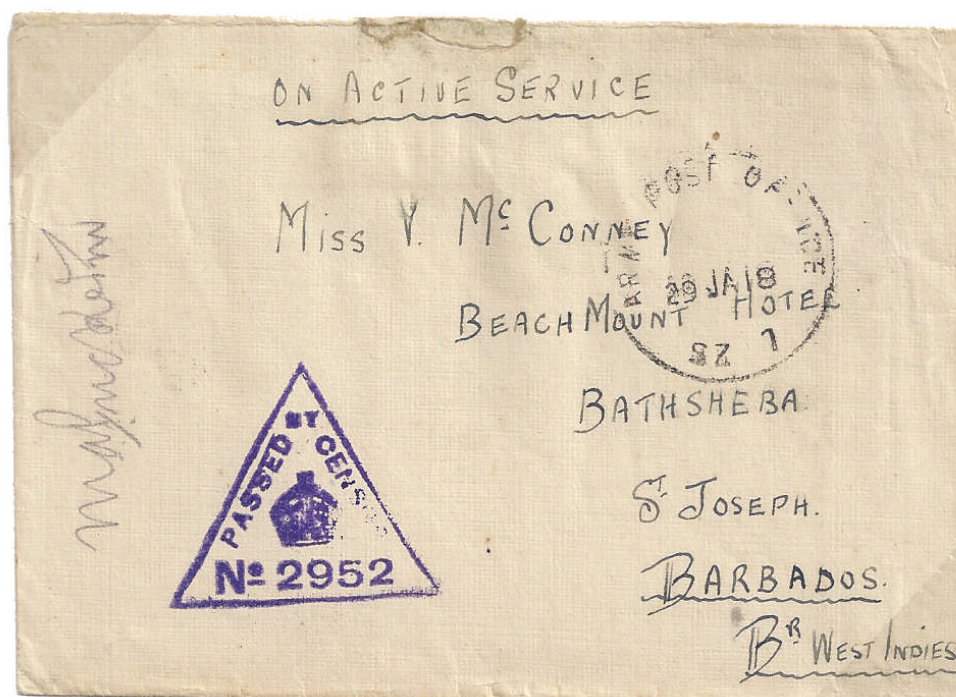 ON ACTIVE SERVICE
Miss V. McConney
BEACHMOUNT HOTEL
BATHSHEBA
St JOSEPH.
BARBADOS.
BR WEST INDIES
ARMY POST OFFICE
29 JA 18
SZ 1
PASSED BY CENSOR
No 2952